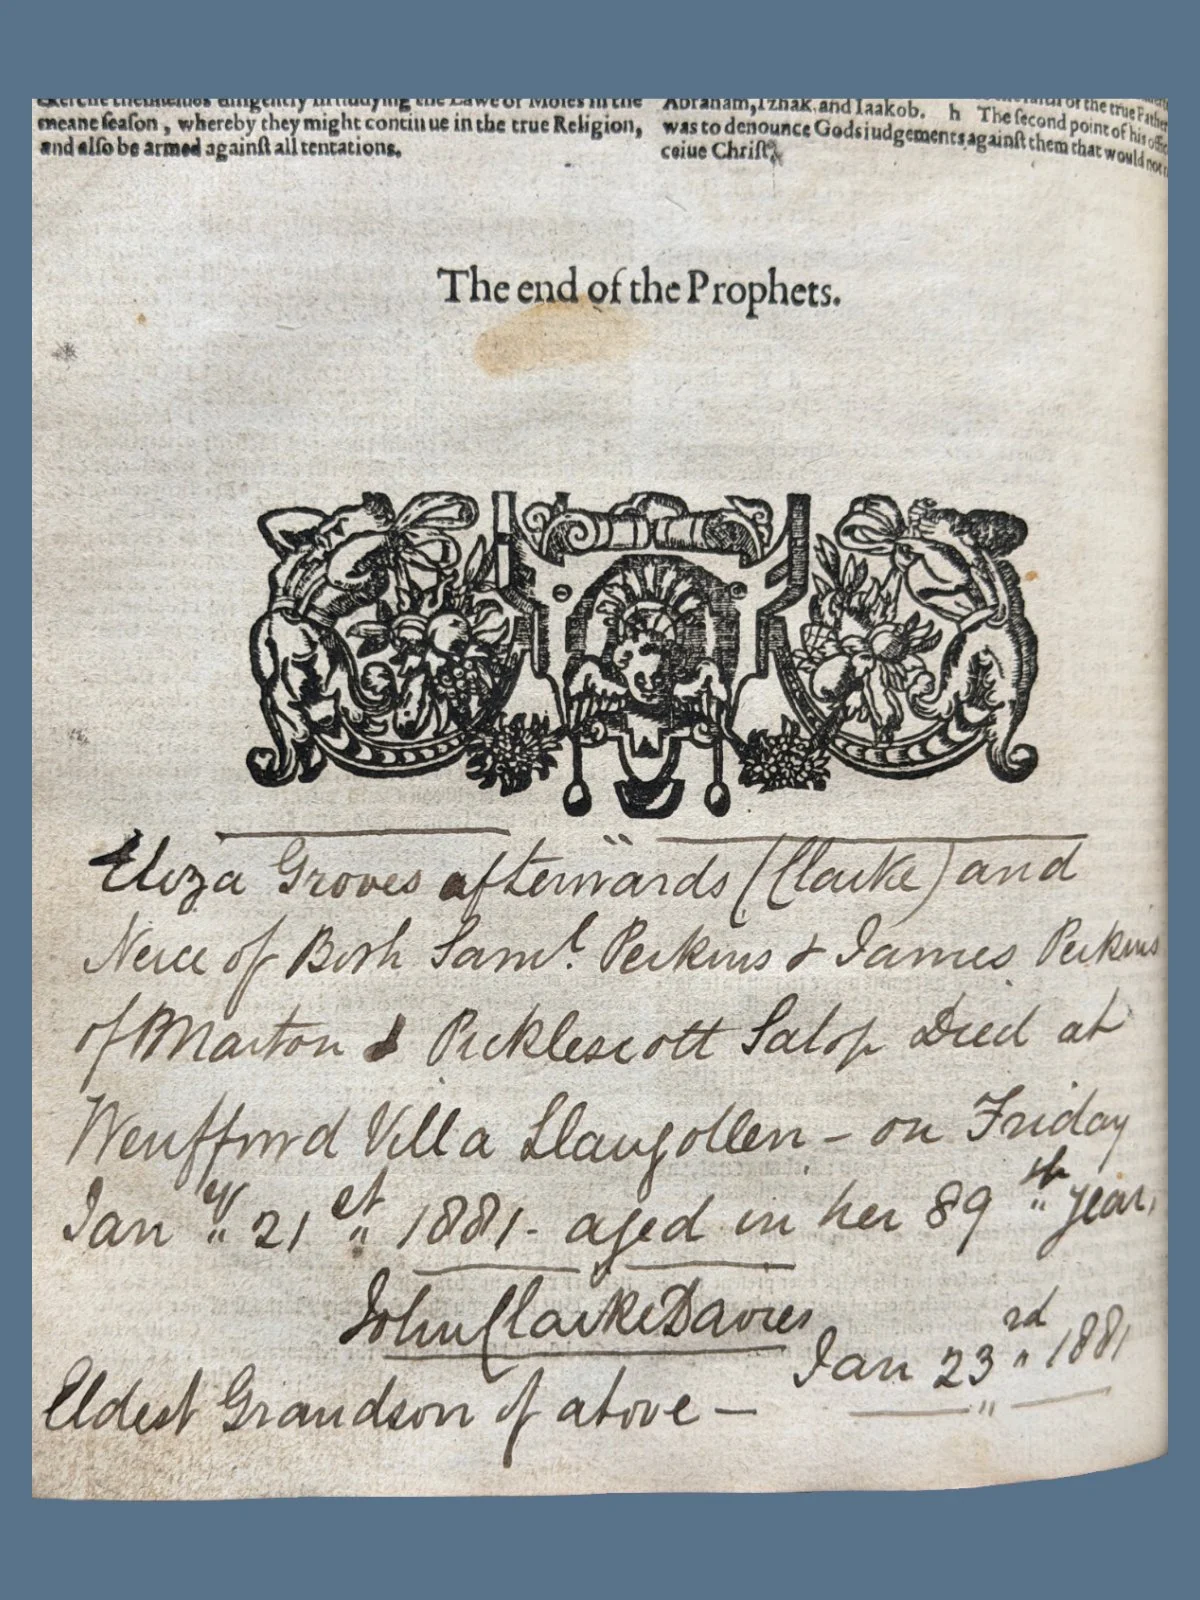 exercise themselues diligently in studying the Lawe of Moses in the
meane ſeaſon, whereby they might continue in the true Religion,
and alſo be armed againſt all tentations.
Abraham, Izhak, and Iaakob. h The ſecond point of his office
was to denounce Gods iudgements againſt them that would not
ceiue Chriſt.
The end of the Prophets.
Eliza Groves afterwards (Clarke) and
Neice of Both Saml. Perkins & James Perkins
of Marton & Picklescott Salop Died at
Wenffrwd Villa Llangollen – on Friday
Jan y 21 st 1881 - aged in her 89 th year.
John Clarke Davies
Jan 23 rd 1881
Eldest Grandson of above –